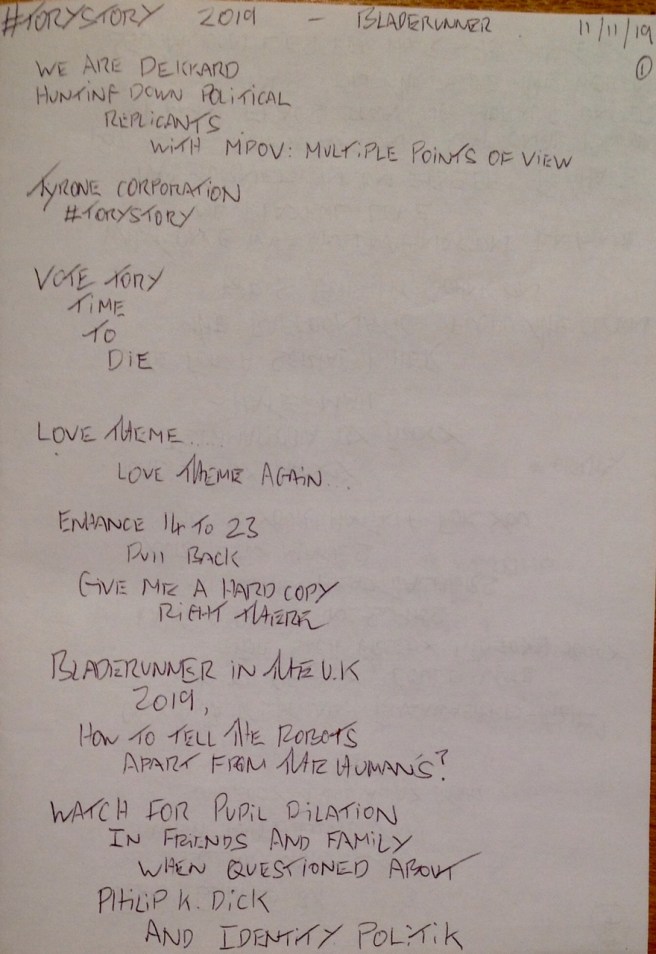 #TORYSTORY 2019 - BLADERUNNER 11/11/19
①
WE ARE DEKKARD
HUNTING DOWN POLITICAL
REPLICANTS
WITH MPOV: MULTIPLE POINTS OF VIEW
TYRONE CORPORATION
#TORYSTORY
VOTE TORY
TIME
TO
DIE
LOVE THEME...
LOVE THEME AGAIN...
ENHANCE 14 TO 23
PULL BACK
GIVE ME A HARD COPY
RIGHT THERE
BLADERUNNER IN THE U.K
2019,
HOW TO TELL THE ROBOTS
APART FROM THE HUMANS?
WATCH FOR PUPIL DILATION
IN FRIENDS AND FAMILY
WHEN QUESTIONED ABOUT
PHILIP K. DICK
AND IDENTITY POLITIK